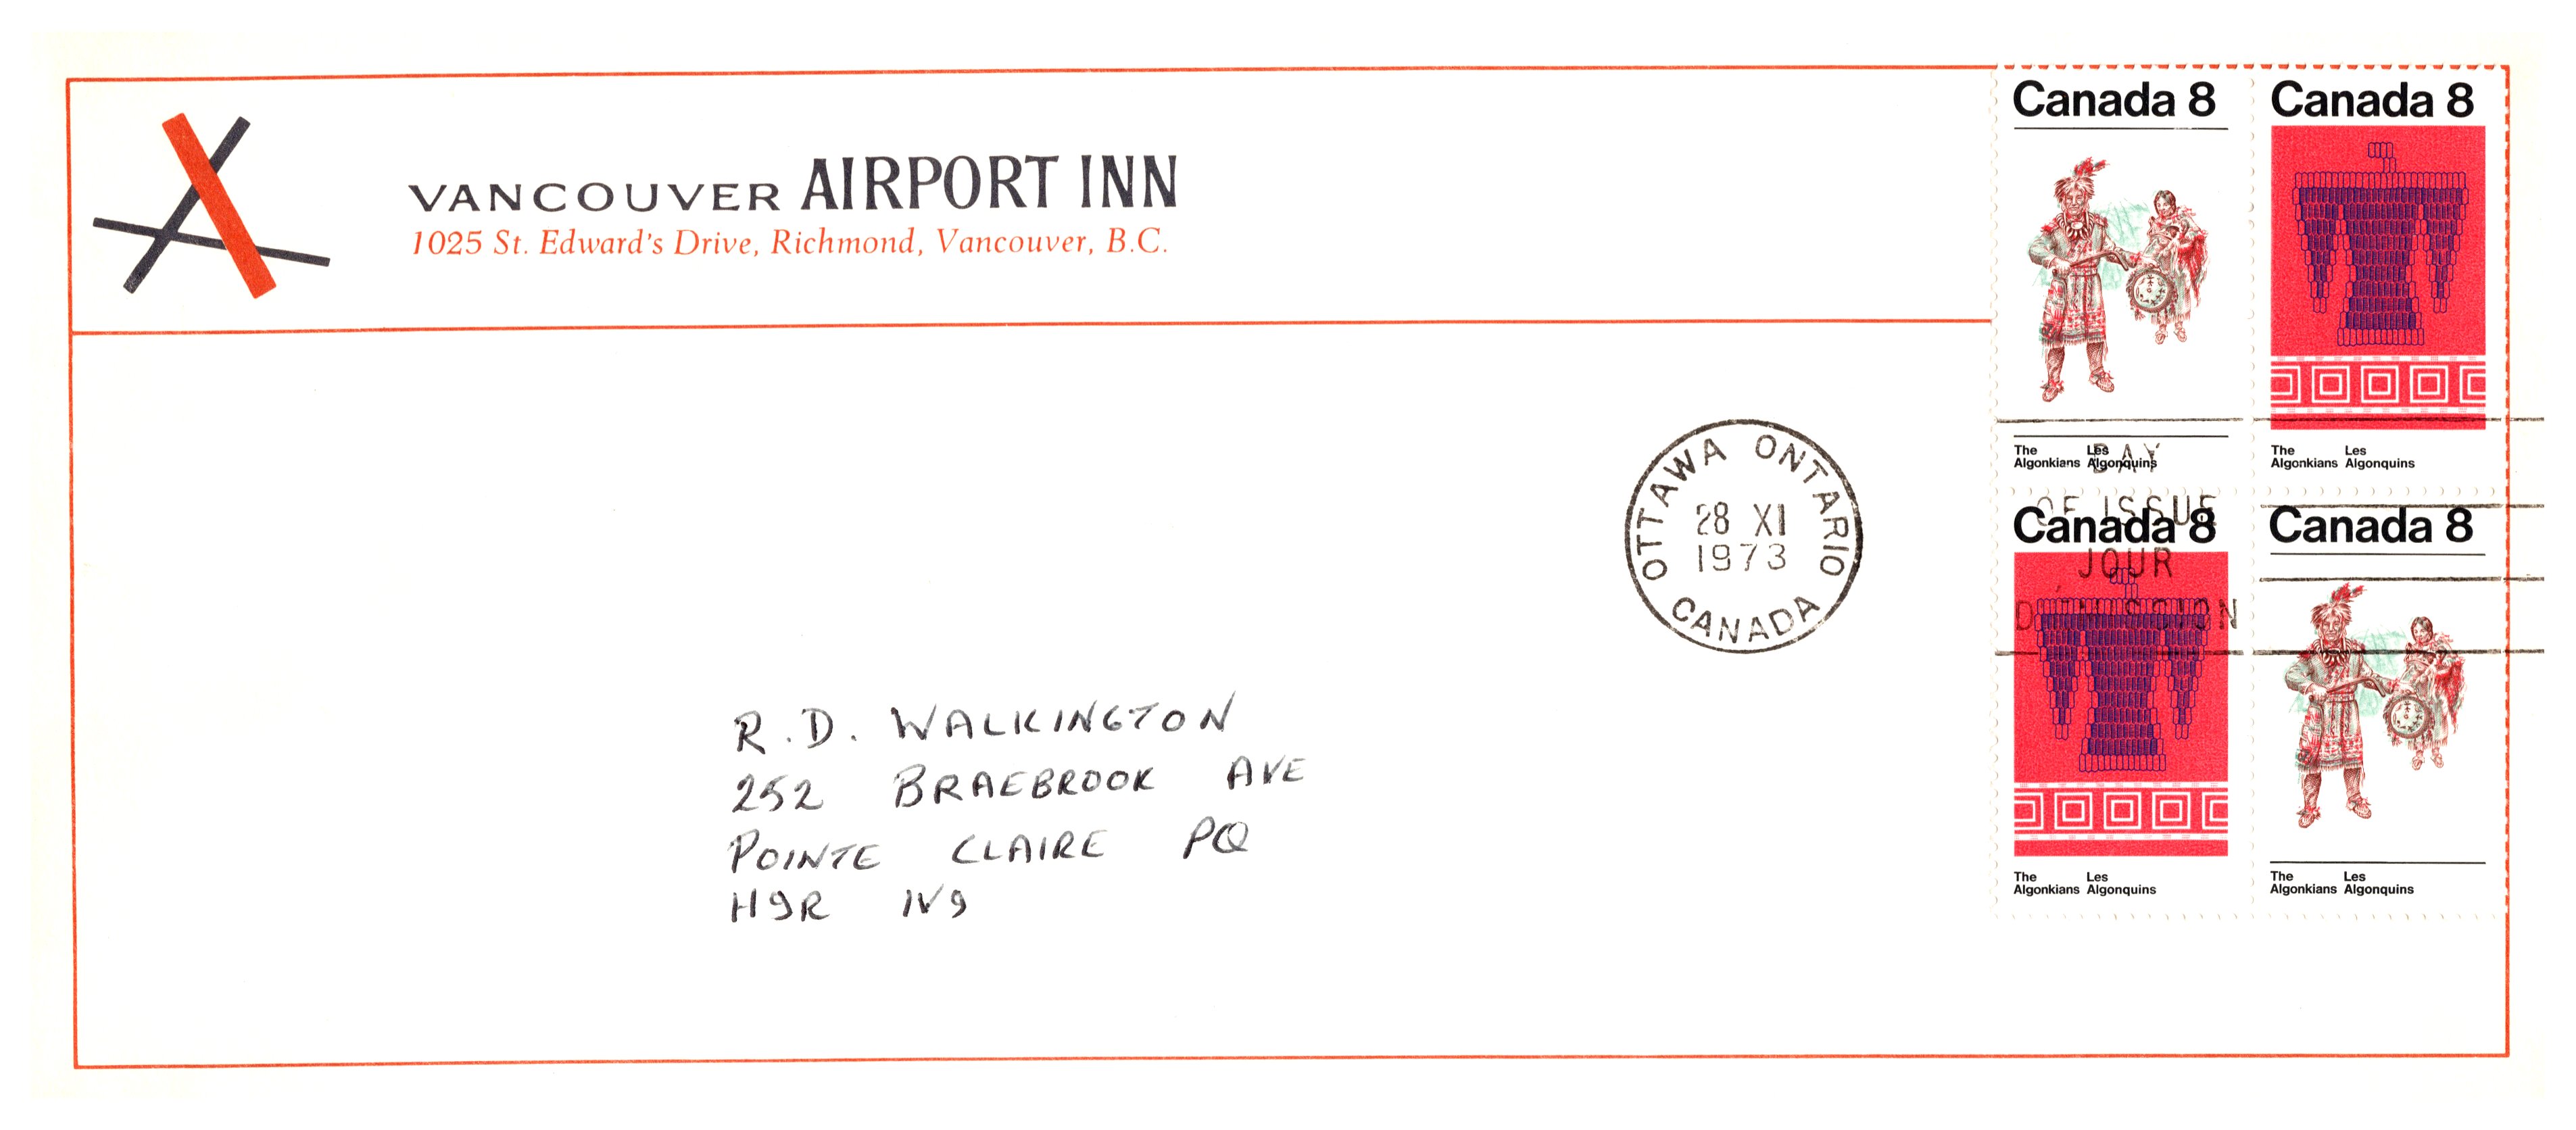 VANCOUVER AIRPORT INN
1025 St. Edward's Drive, Richmond, Vancouver, B.C.
Canada 8
The Les
Algonkians Algonquins
Canada 8
The Les
Algonkians Algonquins
OTTAWA ONTARIO
28 XI
1973
CANADA
DAY
OF ISSUE
JOUR
D'ÉMISSION
Canada 8
The Les
Algonkians Algonquins
Canada 8
The Les
Algonkians Algonquins
R.D. WALKINGTON
252 BRAEBROOK AVE
POINTE CLAIRE PQ
H9R 1V9